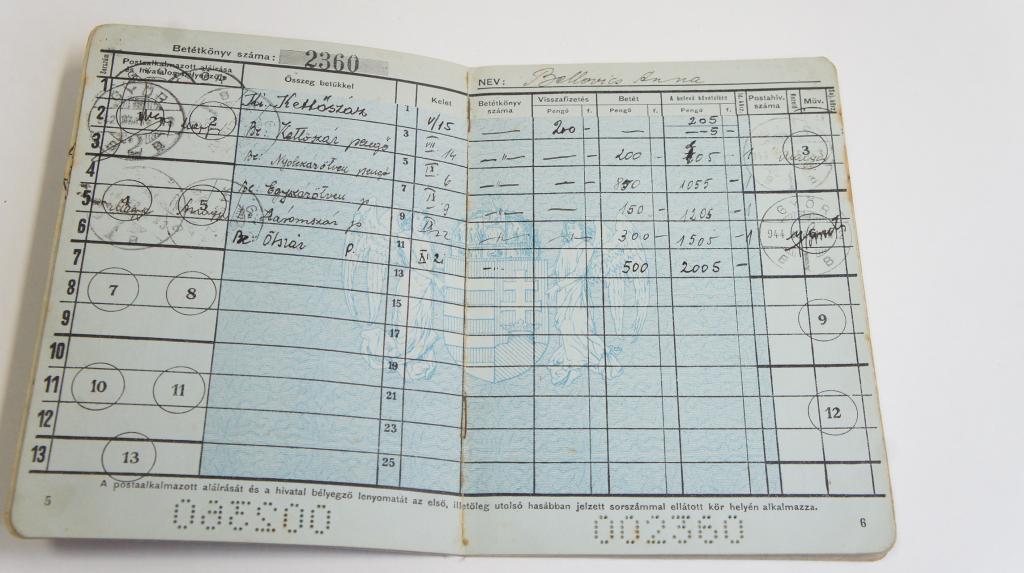 Betétkönyv száma: 2360
Sorszám Postaalkalmazott aláírása és hivatalos bélyegzője Összeg betűkkel Kelet
1 Ki. Kettőszáz 1 V/15
2 Be: Kettőszáz pengő 3 VII. 14
3 Be: Nyolcszázötven pengő 5 IX. 6
4 Be: Egyszázötven p 7 IX 9
5 Háromszáz p 9 IX 22
6 Be: Ötszáz p. 11 XI 2
7 13
8 15
9 17
10 19
11 21
12 23
13 25
GYŐR
2
4 5
7 8
10 11
13
A postaalkalmazott aláírását és a hivatal bélyegző lenyomatát az első,
5
002360
NÉV: Bellovics Anna
Betétkönyv száma Visszafizetés Betét A betevő követelése Postahiv. száma Keregő Műv.
Pengő f. Pengő f. Pengő f.
205
— 200 — — — 5 —
— " — — 200 — 205 — 1
— " — — 850 — 1055 —
— " — — 150 — 1205 — 1
— " — — 300 — 1505 — 1
— " — 500 2005 —
3
GYŐR
944
6
B
9
12
illetőleg utolsó hasábban jelzett sorszámmal ellátott kör helyén alkalmazza.
6
002360